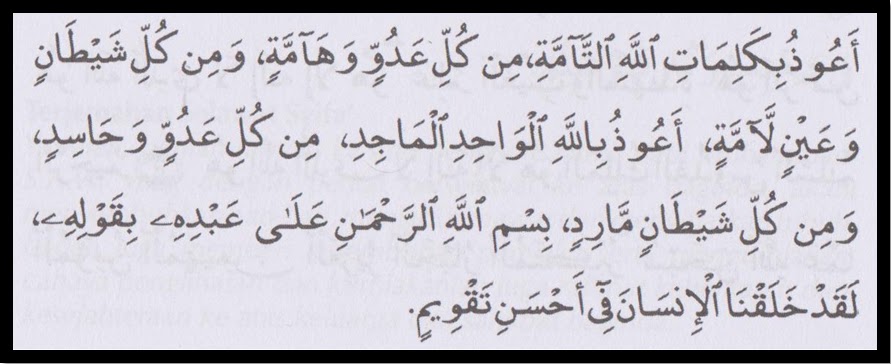 أَعُوذُ بِكَلِمَاتِ ٱللَّهِ ٱلتَّآمَّةِ، مِن كُلِّ عَدُوٍّ وَهَآمَّةٍ، وَمِن كُلِّ شَيْطَانٍ
وَعَيْنٍ لَّآمَّةٍ، أَعُوذُ بِٱللَّهِ ٱلْوَاحِدِ ٱلْمَاجِدِ، مِن كُلِّ عَدُوٍّ وَحَاسِدٍ،
وَمِن كُلِّ شَيْطَانٍ مَّارِدٍ، بِسْمِ ٱللَّهِ ٱلرَّحْمَـٰنِ عَلَىٰ عَبْدِهِۦ بِقَوْلِهِۦ،
لَقَدْ خَلَقْنَا ٱلْإِنسَانَ فِىٓ أَحْسَنِ تَقْوِيمٍ.